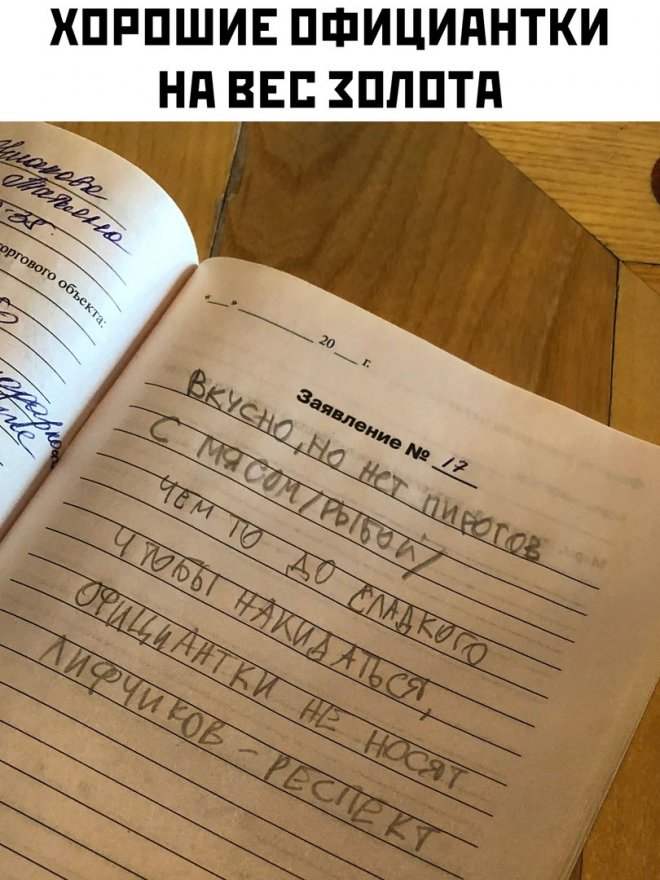 ХОРОШИЕ ОФИЦИАНТКИ
НА ВЕС ЗОЛОТА
торгового объекта:
"__" ________ 20 __ г.
Заявление № 17
ВКУСНО, НО НЕТ ПИРОГОВ
С МЯСОМ/РЫБОЙ/
ЧЕМ ТО ДО СЛАДКОГО
ЧТОБЫ НАКИДАТЬСЯ,
ОФИЦИАНТКИ НЕ НОСЯТ
ЛИФЧИКОВ - РЕСПЕКТ